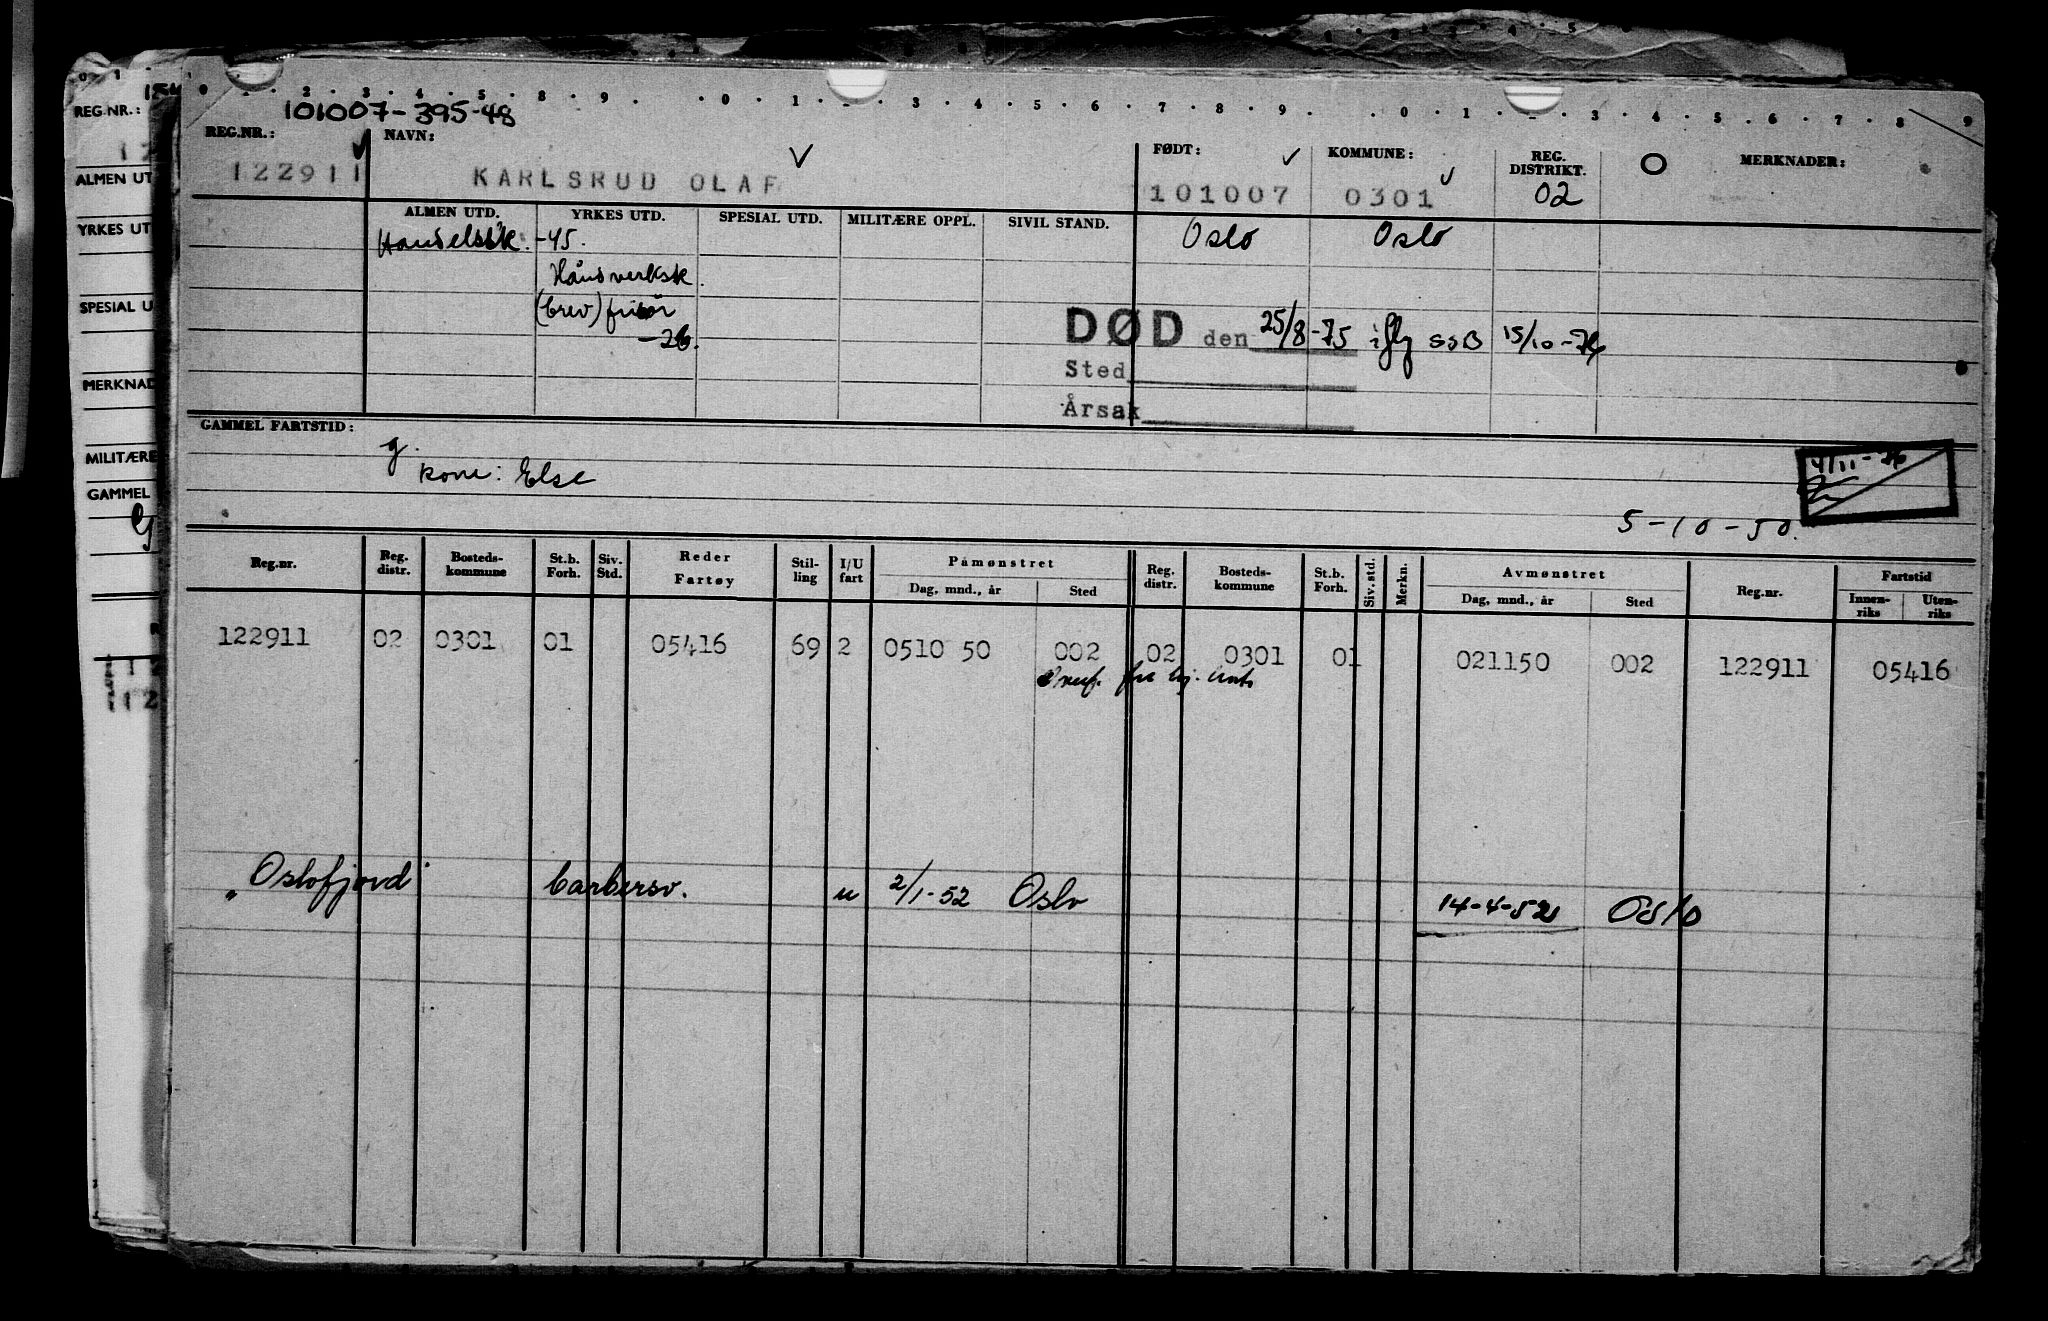 101007-395-48
REG.NR.: NAVN: FØDT: KOMMUNE: REG. DISTRIKT. O MERKNADER:
122911 KARLSRUD OLAF 101007 0301 02
ALMEN UTD. YRKES UTD. SPESIAL UTD. MILITÆRE OPPL. SIVIL STAND. Oslo Oslo
Handelssk. -45.
Håndverksk.
(brev) frisør
-26.
DØD den 25/8-75 iflg SSB 15/10-76
Sted
Årsak
GAMMEL FARTSTID:
g.
kone: Else
4/11-76
5-10-50.
Reg.nr. Reg. distr. Bosteds-kommune St.b. Forh. Siv. Std. Reder Fartøy Stil-ling I/U fart Påmønstret Dag, mnd., år Sted Reg. distr. Bosteds-kommune St.b. Forh. Siv. std. Merkn. Avmønstret Dag, mnd., år Sted Reg.nr. Fartstid Innen-riks Uten-riks
122911 02 0301 01 05416 69 2 0510 50 002 02 0301 01 021150 002 122911 05416
"Oslofjord" barbersv. u 2/1-52 Oslo 14-4-52 Oslo
REG.NR.:
ALMEN UT
YRKES UT
SPESIAL U
MERKNAD
MILITÆRE
GAMMEL